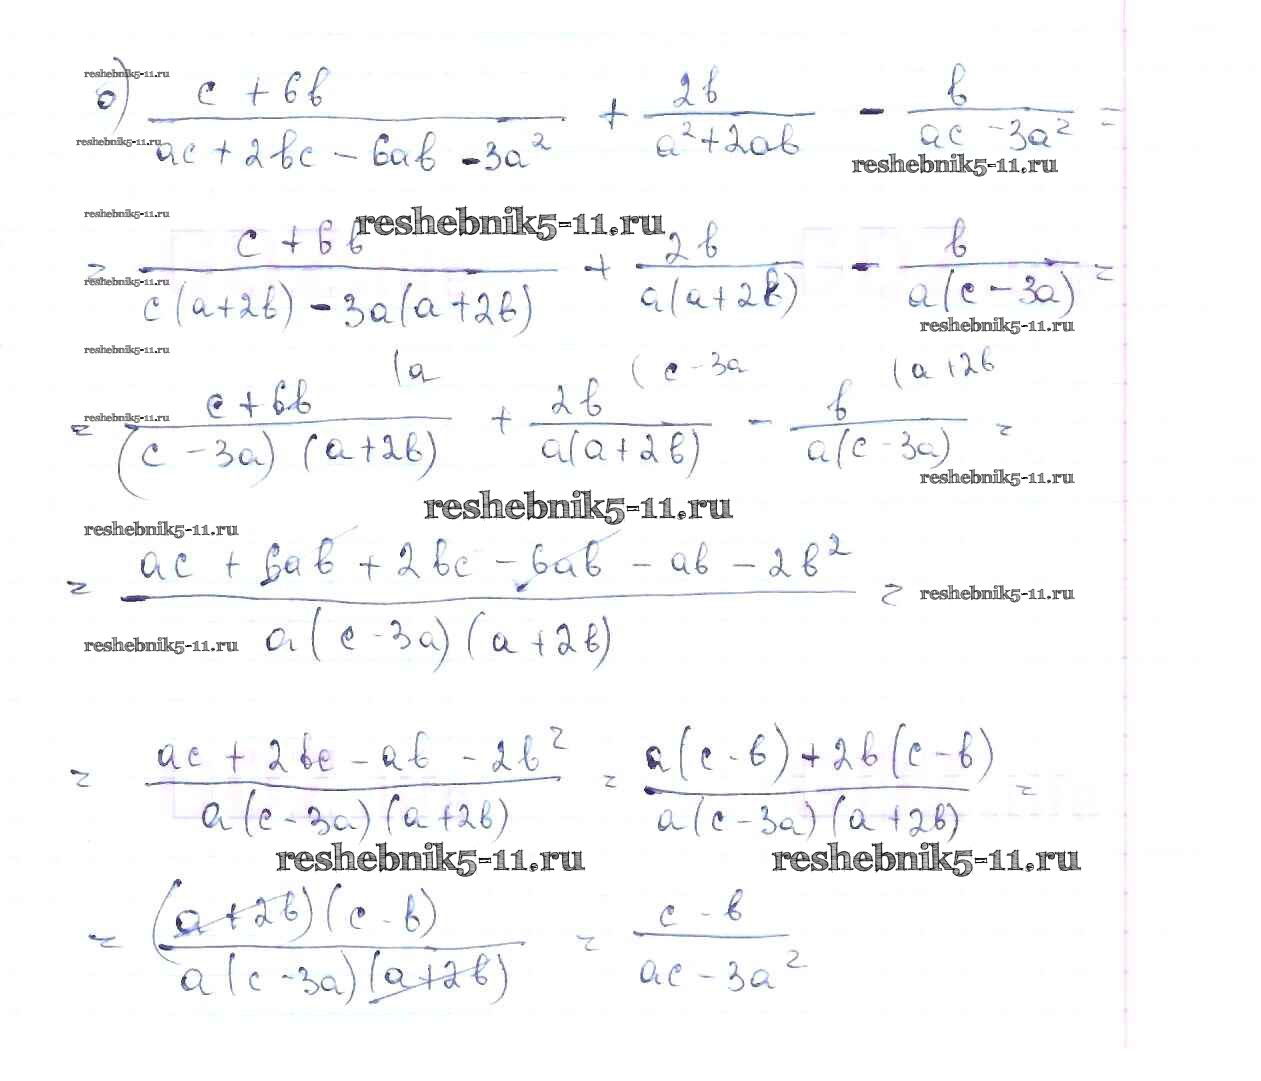 reshebnik5-11.ru
б) (c + 6b)/(ac + 2bc - 6ab - 3a²) + 2b/(a² + 2ab) - b/(ac - 3a²) =
reshebnik5-11.ru reshebnik5-11.ru
reshebnik5-11.ru reshebnik5-11.ru
= (c + 6b)/(c(a+2b) - 3a(a+2b)) + 2b/(a(a+2b)) - b/(a(c-3a)) =
reshebnik5-11.ru reshebnik5-11.ru
reshebnik5-11.ru
= (c+6b)/((c-3a)(a+2b)) (a + 2b/(a(a+2b)) (c-3a - b/(a(c-3a)) (a+2b =
reshebnik5-11.ru reshebnik5-11.ru
reshebnik5-11.ru reshebnik5-11.ru
= (ac + 6ab + 2bc - 6ab - ab - 2b²)/(a(c-3a)(a+2b)) =
reshebnik5-11.ru reshebnik5-11.ru
= (ac + 2bc - ab - 2b²)/(a(c-3a)(a+2b)) = (a(c-b)+2b(c-b))/(a(c-3a)(a+2b)) =
reshebnik5-11.ru reshebnik5-11.ru
= ((a+2b)(c-b))/(a(c-3a)(a+2b)) = (c-b)/(ac-3a²)